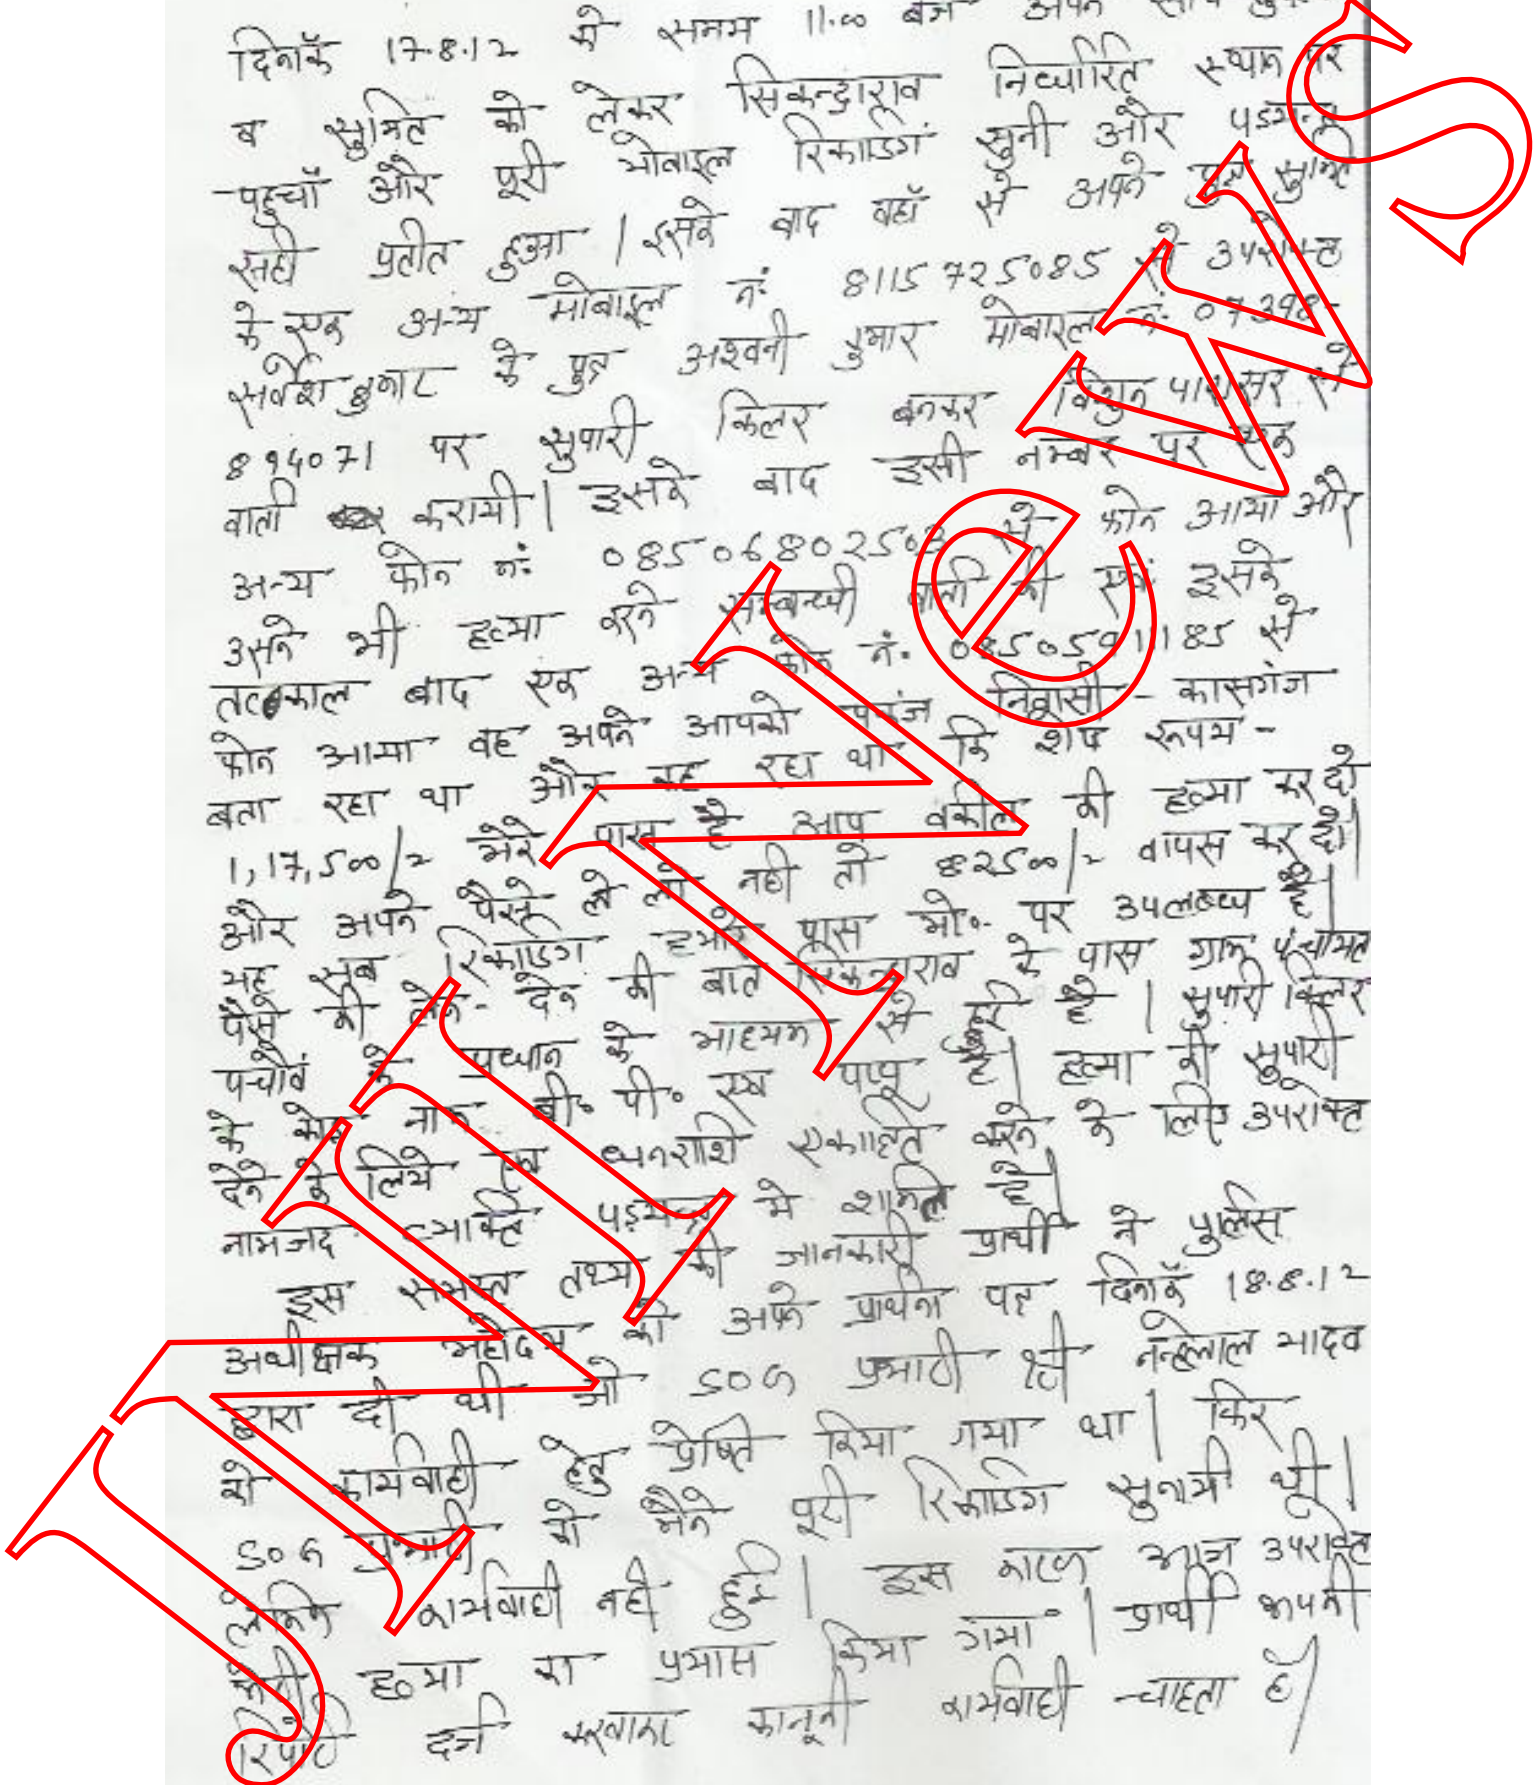 दिनाँक 17.8.12 को समय 11.00 बजे अपने साथ
व सुमित को लेकर सिकन्द्राराव निर्धारित स्थान पर
पहुचाँ और पूरी मोबाइल रिकार्डिग सुनी और षडयन्त्र
सही प्रतीत हुआ । इसके बाद वहाँ से अपने पुत्र सुमित
के एक अन्य मोबाइल नं॰ 8115725085 से उपरोक्त
सर्वेश कुमार के पुत्र अश्वनी कुमार मोबाइल नं॰ 07398-
894071 पर सुपारी किलर बनकर पारासर से
वार्ता करायी । इसके बाद इसी नम्बर पर एक
अन्य फोन नं॰ 08506802503 से फोन आया और
उसने भी हत्या करने सम्बन्धी वार्ता की एवं इसके
तत्काल बाद एक अन्य फोन नं॰ 08505911185 से
फोन आया वह अपने आपको पकंज निवासी - कासगंज
बता रहा था और कह रहा था कि शेष रूपय -
1,17,500/2 मेरे पास है आप वकील की हत्या कर दो
और अपने पैसे ले लो नही तो 82500/2 वापस कर दो ।
यह सब रिकार्डिग हमारे पास मो॰ पर उपलब्ध है ।
पैसे की लेन - देन की बात सिकन्द्राराव के पास ग्राम पंचायत
पचों के प्रधान के माध्यम से हुई है । सुपारी किलर
के कोड नाम बी॰ पी॰ एवं पप्पू है । हत्या की सुपारी
देने के लिये एवं धनराशि एकत्रित करने के लिए उपरोक्त
नामजद व्यक्ति षड़यन्त्र मे शामिल है ।
इस समस्त तथ्य की जानकारी प्रार्थी ने पुलिस
अधीक्षक महोदय को अपने प्रार्थना पत्र दिनाँक 18.8.12
द्वारा दी थी जो SOG प्रभारी श्री नन्हेलाल यादव
को कार्यवाही हेतु प्रेषित किया गया था । फिर
SOG प्रभारी को मैने पूरी रिकार्डिग सुनायी थी ।
लेकिन कार्यवाही नही हुई । इस कारण आज उपरोक्त
मेरी हत्या का प्रयास किया गया । प्रार्थी अपनी
रिपोर्ट दर्ज करवाकर कानूनी कार्यवाही चाहता है ।
JNINEWS